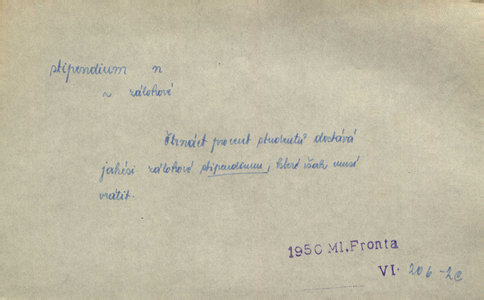 stipendium n
~ zálohové
Čtrnáct procent studentů dostává
jakési zálohové stipendium, které však musí
vrátit.
1950 Ml. Fronta
VI. 206 -2c